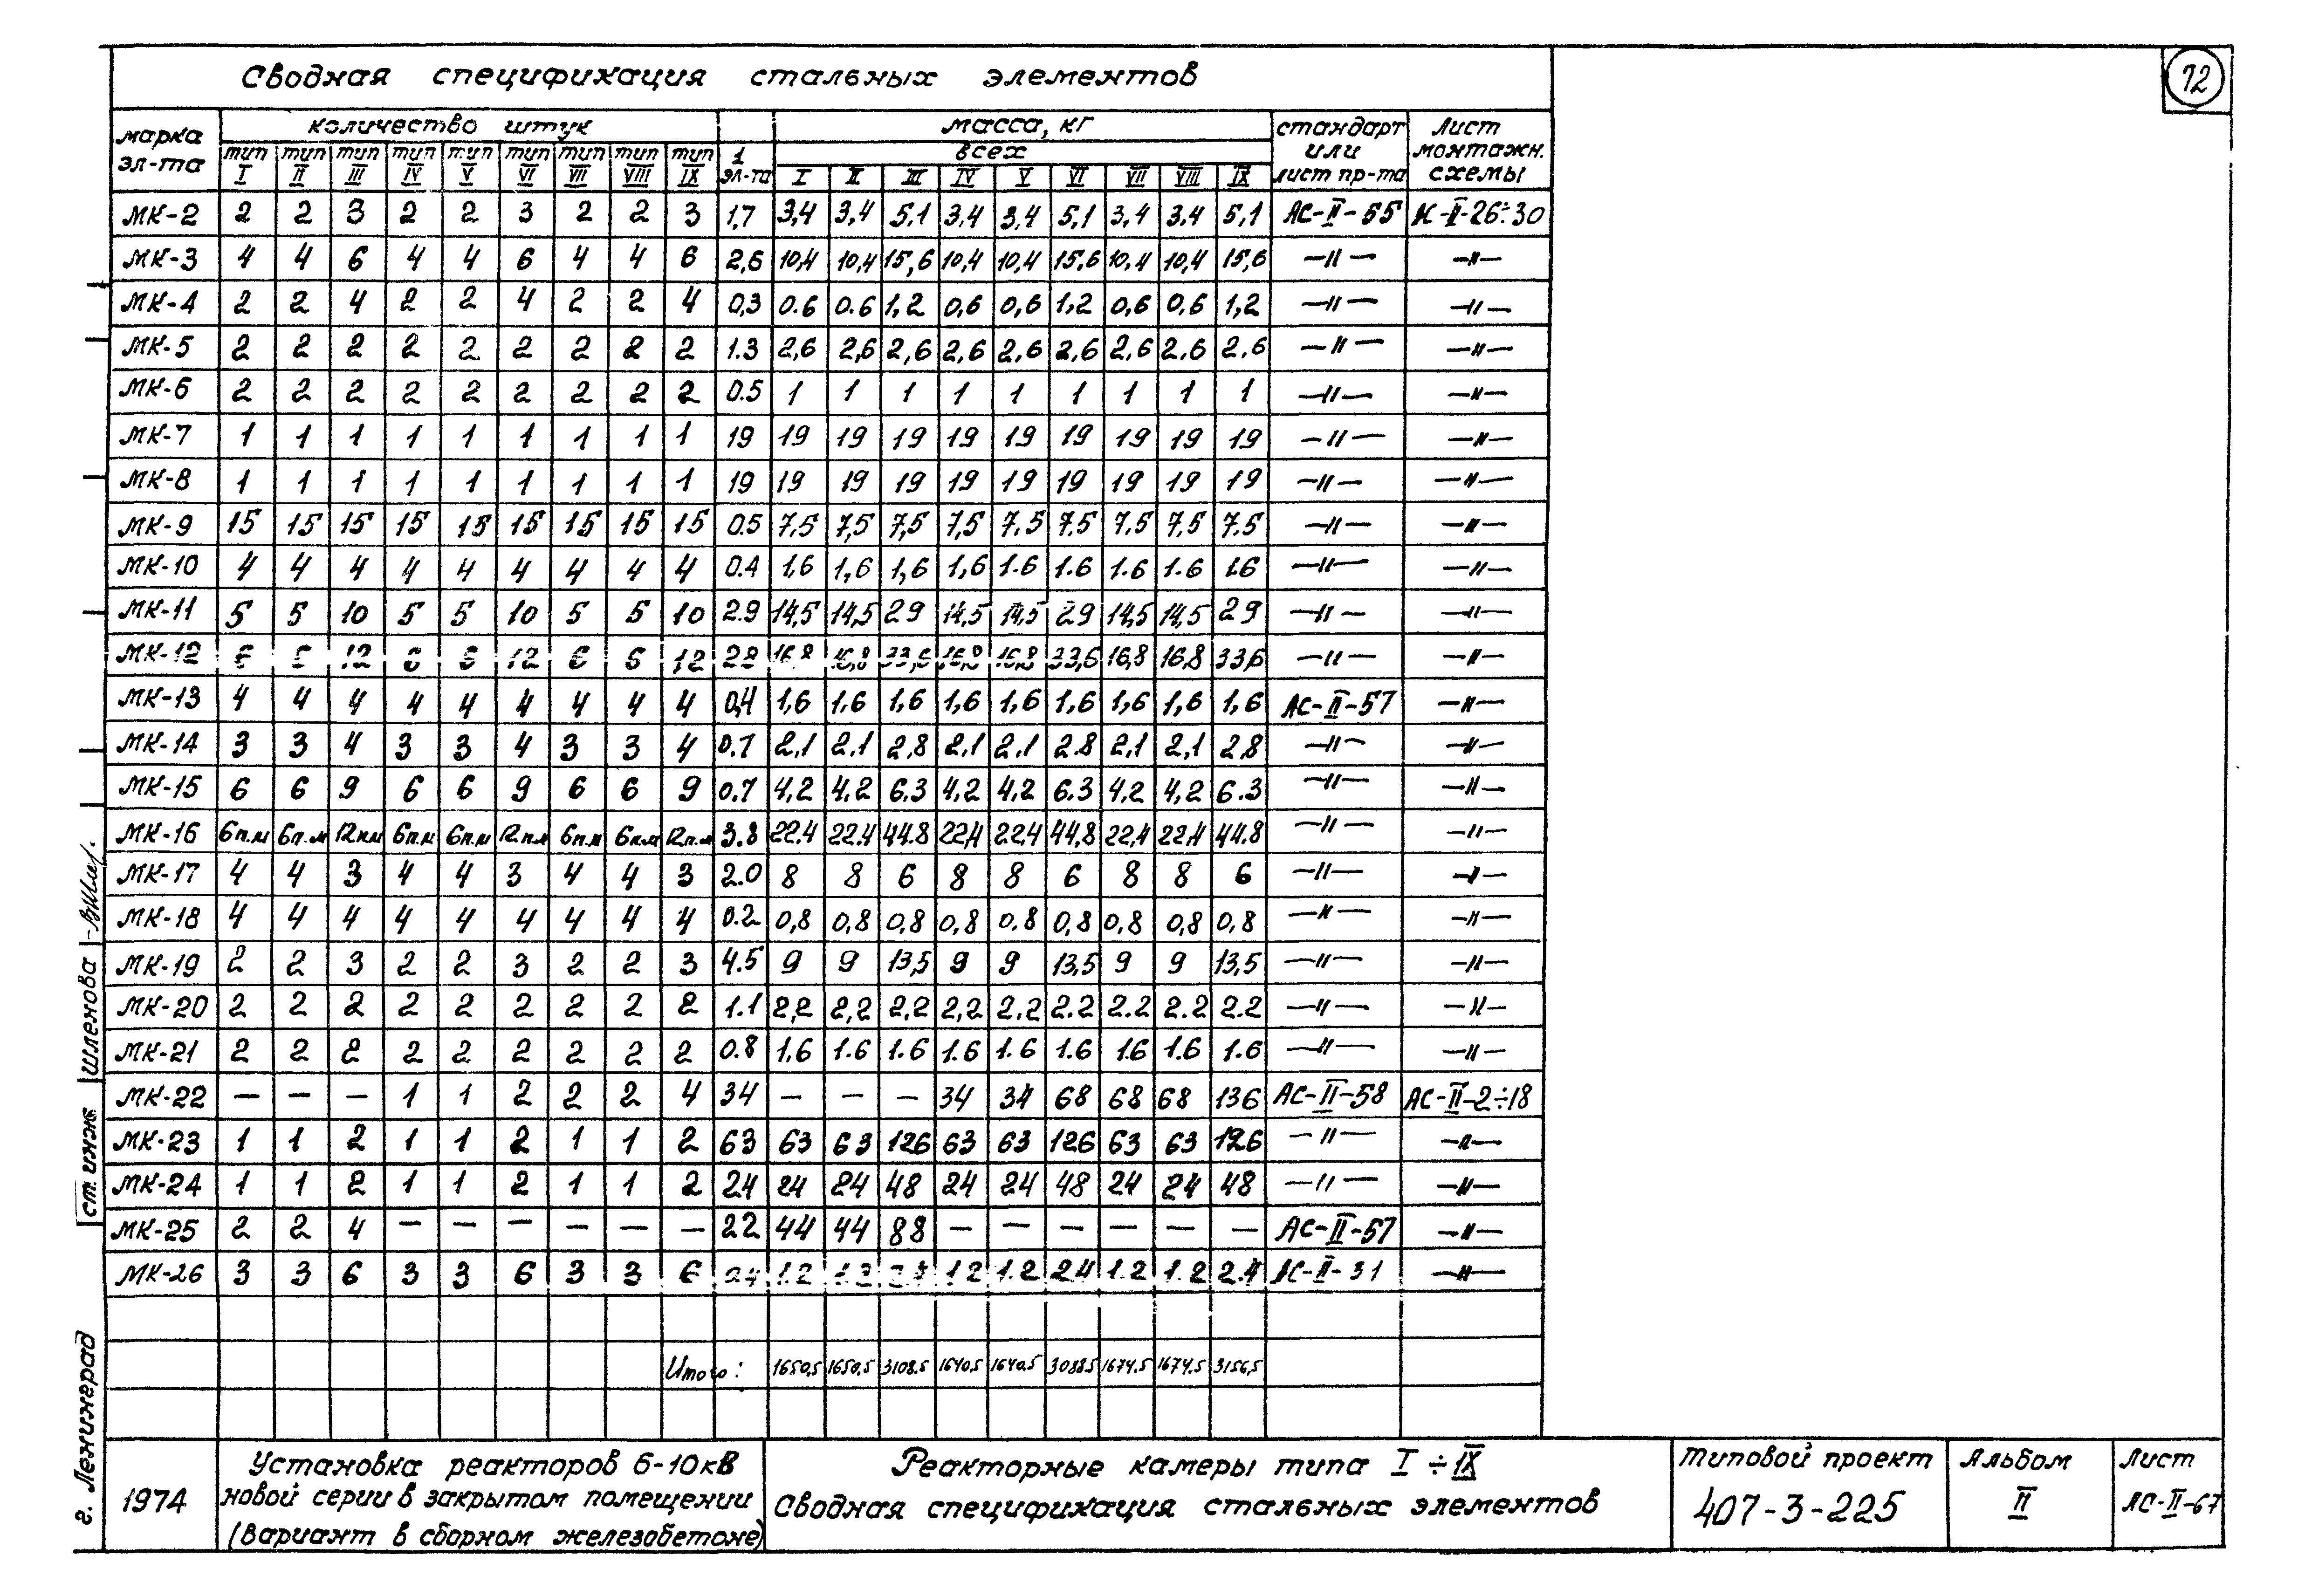 72
Сводная спецификация стальных элементов
марка эл-та | количество штук | масса, кг | стандарт или лист пр-та | Лист монтажн. схемы
тип I | тип II | тип III | тип IV | тип V | тип VI | тип VII | тип VIII | тип IX | 1 эл-та | всех I | II | III | IV | V | VI | VII | VIII | IX
МК-2 2 2 3 2 2 3 2 2 3 1,7 3,4 3,4 5,1 3,4 3,4 5,1 3,4 3,4 5,1 АС-II-55 АС-II-26÷30
МК-3 4 4 6 4 4 6 4 4 6 2,6 10,4 10,4 15,6 10,4 10,4 15,6 10,4 10,4 15,6 —"— —"—
МК-4 2 2 4 2 2 4 2 2 4 0,3 0.6 0.6 1,2 0,6 0,6 1,2 0,6 0,6 1,2 —"— —"—
МК-5 2 2 2 2 2 2 2 2 2 1.3 2,6 2,6 2,6 2,6 2,6 2,6 2,6 2,6 2,6 —"— —"—
МК-6 2 2 2 2 2 2 2 2 2 0.5 1 1 1 1 1 1 1 1 1 —"— —"—
МК-7 1 1 1 1 1 1 1 1 1 19 19 19 19 19 19 19 19 19 19 —"— —"—
МК-8 1 1 1 1 1 1 1 1 1 19 19 19 19 19 19 19 19 19 19 —"— —"—
МК-9 15 15 15 15 15 15 15 15 15 0.5 7,5 7,5 7,5 7,5 7,5 7.5 7.5 7,5 7.5 —"— —"—
МК-10 4 4 4 4 4 4 4 4 4 0.4 1,6 1,6 1,6 1,6 1.6 1.6 1.6 1.6 1.6 —"— —"—
МК-11 5 5 10 5 5 10 5 5 10 2.9 14,5 14,5 29 14,5 14,5 29 14,5 14,5 29 —"— —"—
МК-12 6 6 12 6 6 12 6 6 12 2.8 16,8 16,8 33,6 16,8 16,8 33,6 16,8 16,8 33,6 —"— —"—
МК-13 4 4 4 4 4 4 4 4 4 0,4 1,6 1.6 1,6 1,6 1,6 1,6 1,6 1,6 1,6 АС-II-57 —"—
МК-14 3 3 4 3 3 4 3 3 4 0.7 2,1 2.1 2,8 2,1 2.1 2.8 2,1 2,1 2.8 —"— —"—
МК-15 6 6 9 6 6 9 6 6 9 0.7 4,2 4.2 6.3 4,2 4,2 6.3 4,2 4,2 6.3 —"— —"—
МК-16 6п.м 6п.м 12п.м 6п.м 6п.м 12п.м 6п.м 6п.м 12п.м 3.8 22.4 22.4 44.8 22,4 22,4 44,8 22,4 22,4 44.8 —"— —"—
МК-17 4 4 3 4 4 3 4 4 3 2.0 8 8 6 8 8 6 8 8 6 —"— —"—
МК-18 4 4 4 4 4 4 4 4 4 0.2 0,8 0,8 0,8 0,8 0.8 0,8 0,8 0,8 0,8 —"— —"—
МК-19 2 2 3 2 2 3 2 2 3 4.5 9 9 13,5 9 9 13,5 9 9 13,5 —"— —"—
МК-20 2 2 2 2 2 2 2 2 2 1.1 2,2 2,2 2,2 2,2 2,2 2.2 2.2 2.2 2.2 —"— —"—
МК-21 2 2 2 2 2 2 2 2 2 0.8 1.6 1.6 1.6 1.6 1.6 1.6 1.6 1.6 1.6 —"— —"—
МК-22 — — — 1 1 2 2 2 4 34 — — — 34 34 68 68 68 136 АС-II-58 АС-II-2÷18
МК-23 1 1 2 1 1 2 1 1 2 63 63 63 126 63 63 126 63 63 126 —"— —"—
МК-24 1 1 2 1 1 2 1 1 2 24 24 24 48 24 24 48 24 24 48 —"— —"—
МК-25 2 2 4 — — — — — — 22 44 44 88 — — — — — — АС-II-57 —"—
МК-26 3 3 6 3 3 6 3 3 6 0.4 1.2 1.2 2.4 1.2 1.2 2.4 1.2 1.2 2.4 АС-II-31 —"—
Итого: 1650,5 1650,5 3108.5 1640,5 1640.5 3088.5 1674.5 1674.5 3156,5
ст. инж. Шленова
г. Ленинград
1974
Установка реакторов 6-10кВ
новой серии в закрытом помещении
(Вариант в сборном железобетоне)
Реакторные камеры типа I÷IX
Сводная спецификация стальных элементов
Типовой проект
407-3-225
Альбом
II
Лист
АС-II-67